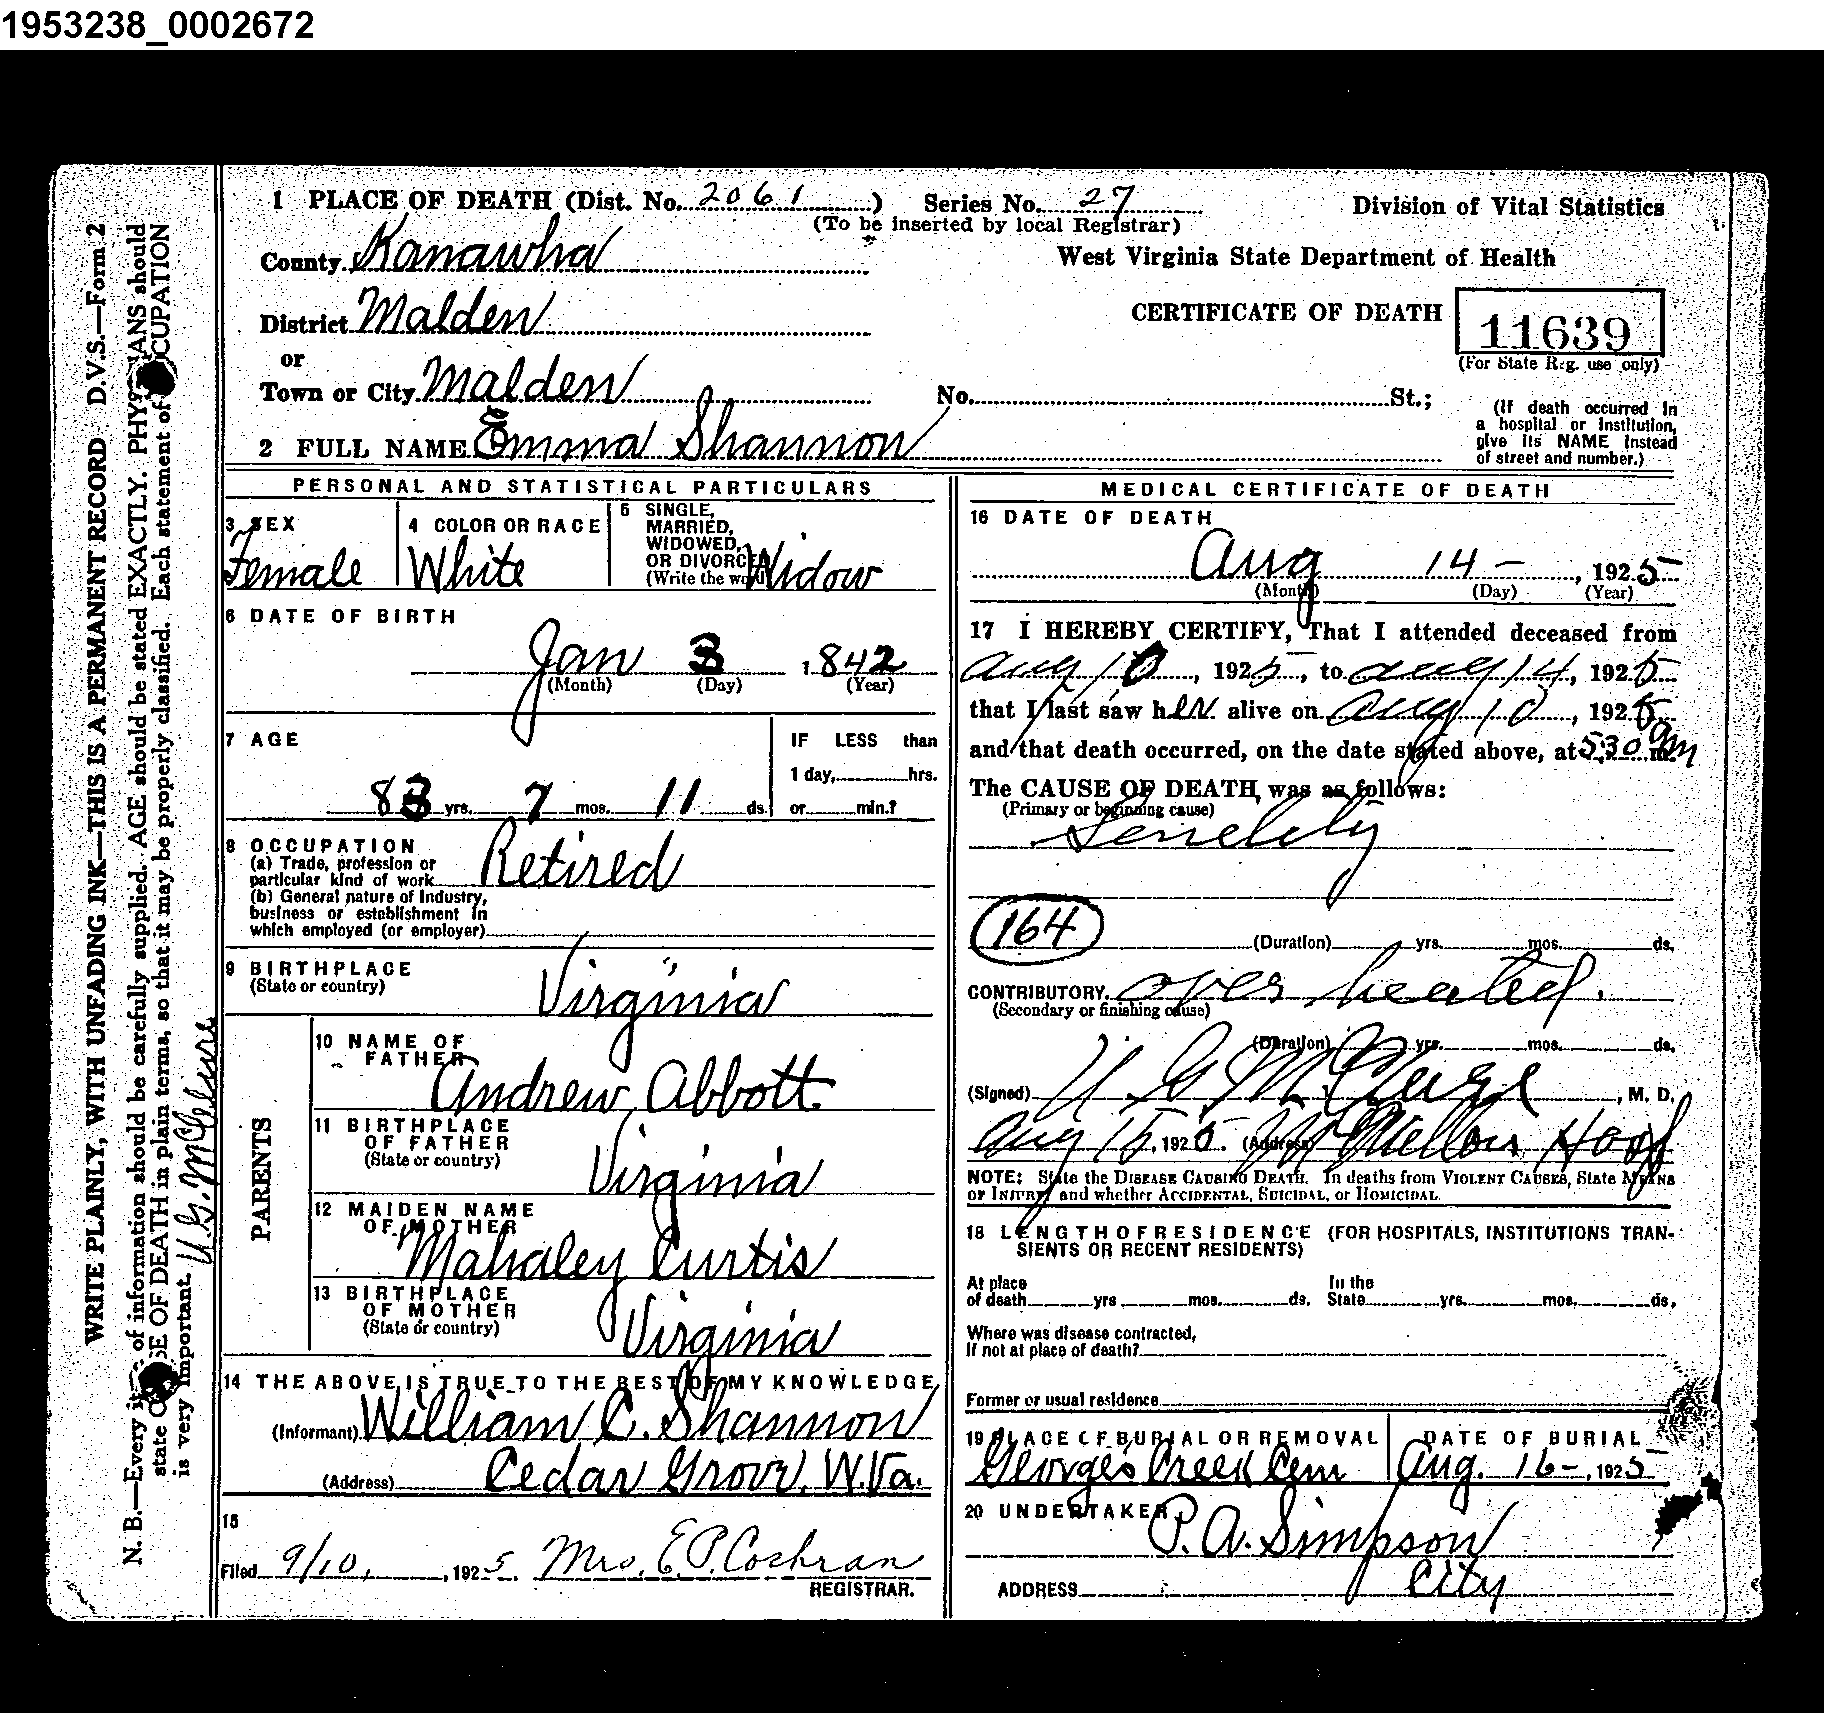 1953238_0002672
1 PLACE OF DEATH (Dist. No. 2061) Series No. 27
(To be inserted by local Registrar)
Division of Vital Statistics
County Kanawha
West Virginia State Department of Health
District Malden
CERTIFICATE OF DEATH
11639
(For State Reg. use only)
or
Town or City Malden
No. St.;
(If death occurred in
a hospital or institution,
give its NAME instead
of street and number.)
2 FULL NAME Emma Shannon
PERSONAL AND STATISTICAL PARTICULARS
3 SEX
Female
4 COLOR OR RACE
White
5 SINGLE,
MARRIED,
WIDOWED,
OR DIVORCED
(Write the word)
Widow
6 DATE OF BIRTH
Jan 3 1842
(Month) (Day) (Year)
7 AGE
83 yrs. 7 mos. 11 ds.
IF LESS than
1 day, hrs.
or min.?
8 OCCUPATION
(a) Trade, profession or
particular kind of work Retired
(b) General nature of industry,
business or establishment in
which employed (or employer)
9 BIRTHPLACE
(State or country)
Virginia
PARENTS
10 NAME OF
FATHER
Andrew Abbott
11 BIRTHPLACE
OF FATHER
(State or country)
Virginia
12 MAIDEN NAME
OF MOTHER
Mahaley Curtis
13 BIRTHPLACE
OF MOTHER
(State or country)
Virginia
14 THE ABOVE IS TRUE TO THE BEST OF MY KNOWLEDGE
(Informant) William C. Shannon
(Address) Cedar Grove, W.Va.
15
Filed 9/10, 1925 Mrs. E.P. Cochran
REGISTRAR.
MEDICAL CERTIFICATE OF DEATH
16 DATE OF DEATH
Aug 14 - , 1925
(Month) (Day) (Year)
17 I HEREBY CERTIFY, That I attended deceased from
Aug 10, 1925, to Aug 14, 1925
that I last saw her alive on Aug 10, 1925
and that death occurred, on the date stated above, at 530 am
The CAUSE OF DEATH was as follows:
(Primary or beginning cause)
Senelity
164
(Duration) yrs. mos. ds.
CONTRIBUTORY over heated.
(Secondary or finishing cause)
(Duration) yrs. mos. ds.
(Signed) U G McClure, M. D.
Aug 15, 1925. (Address)
NOTE: State the DISEASE CAUSING DEATH. In deaths from VIOLENT CAUSES, State MEANS
OF INJURY and whether ACCIDENTAL, SUICIDAL, or HOMICIDAL.
18 LENGTH OF RESIDENCE (FOR HOSPITALS, INSTITUTIONS TRAN-
SIENTS OR RECENT RESIDENTS)
At place
of death yrs mos. ds.
In the
State yrs. mos. ds.
Where was disease contracted,
if not at place of death?
Former or usual residence
19 PLACE OF BURIAL OR REMOVAL
Georges Creek Cem
DATE OF BURIAL
Aug. 16-, 1925
20 UNDERTAKER
P. A. Simpson
ADDRESS City
WRITE PLAINLY, WITH UNFADING INK—THIS IS A PERMANENT RECORD D.V.S.—Form 2
N. B.—Every item of information should be carefully supplied. AGE should be stated EXACTLY. PHYSICIANS should
state CAUSE OF DEATH in plain terms, so that it may be properly classified. Each statement of OCCUPATION
is very important. U.G. McClure